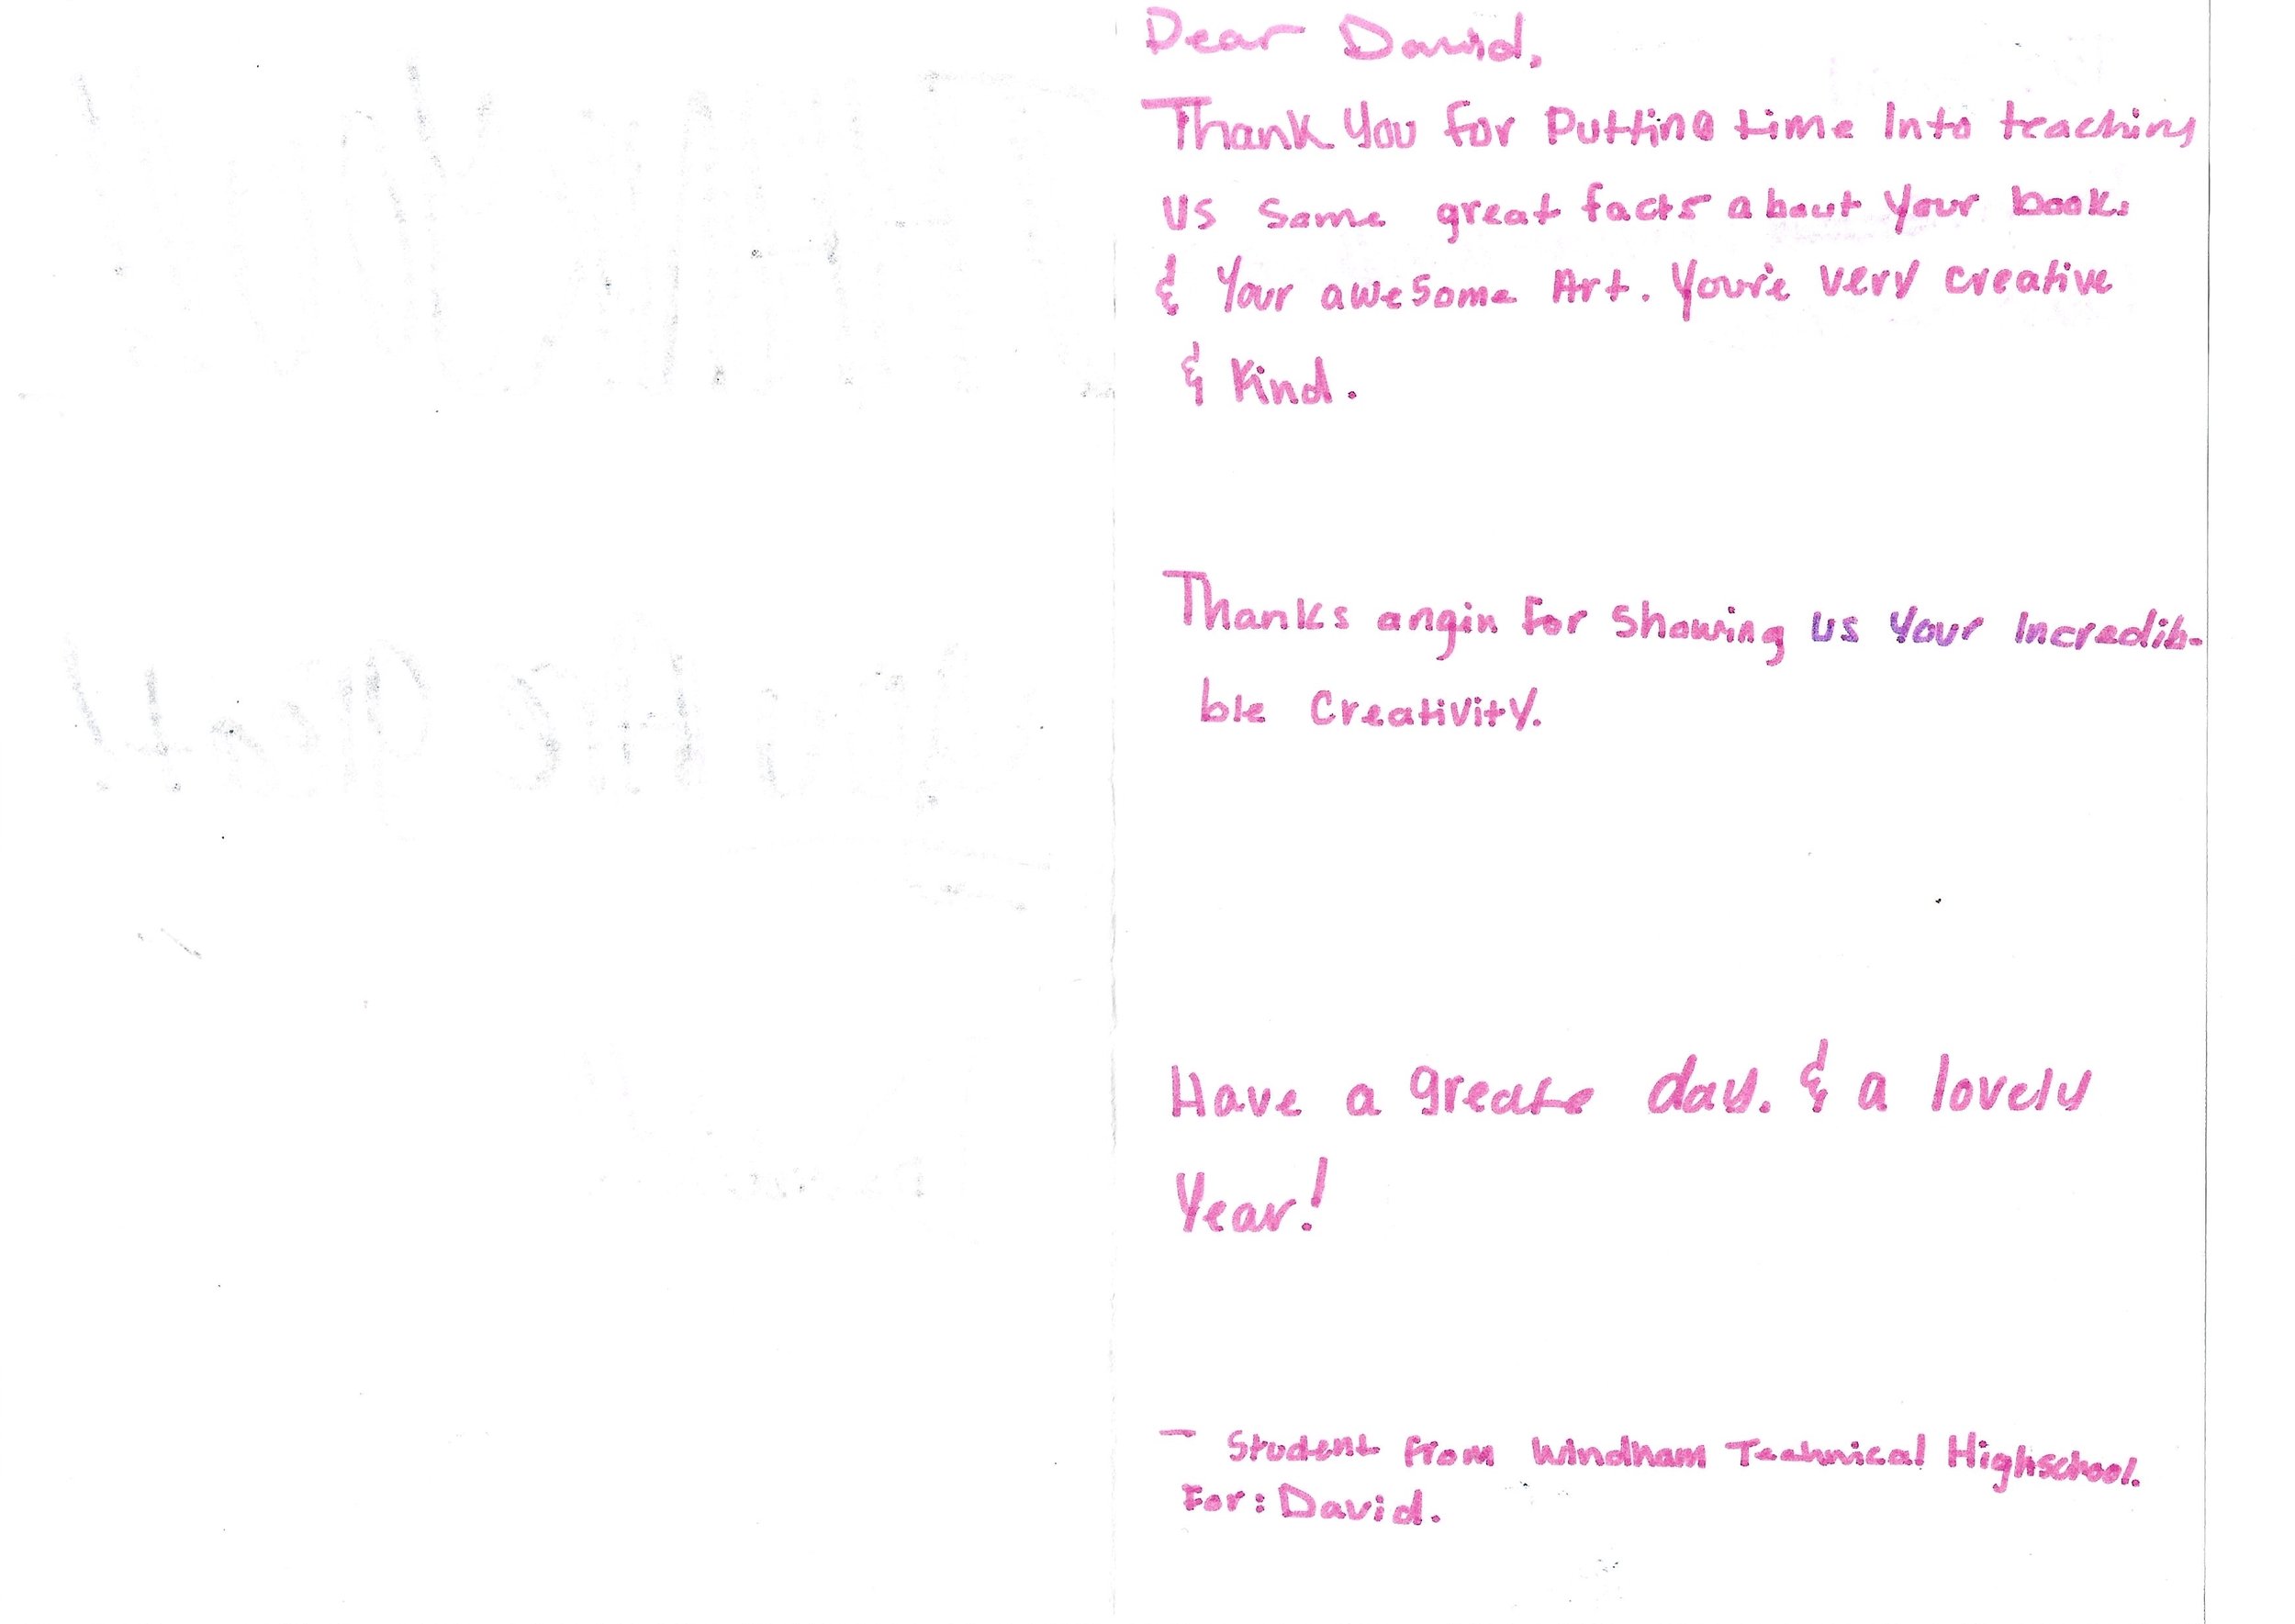 Dear David,
Thank You for Putting time Into teaching
Us some great facts about Your book
& Your awesome Art. You're very creative
& Kind.
Thanks angin for showing us Your Incredib-
ble Creativity.
Have a greate day. & a lovely
Year!
- Student from Windham Technical Highschool.
For: David.
THANK YOU!
You Are great!